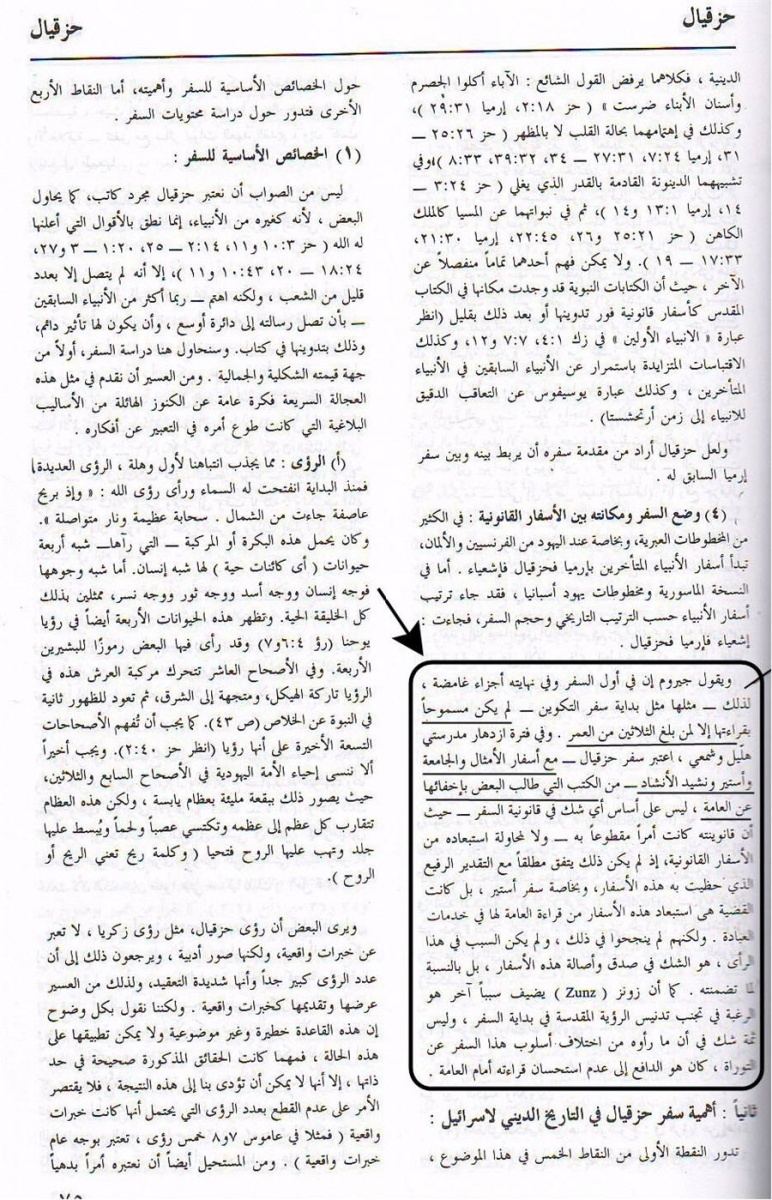 حزقيال
حزقيال
الدينية ، فكلاهما يرفض القول الشائع : الآباء أكلوا الحصرم
وأسنان الأبناء ضرست » ( حز ٢:١٨، إرميا ٢٩:٣١ )،
وكذلك في إهتمامهما بحالة القلب لا بالمظهر ( حز ٢٥:٢٦ —
٣١، إرميا ٢٤:٧، ٢٧:٣١ — ٣٤، ٣٩:٣٢، ٨:٣٣ )،وفي
تشبيههما الدينونة القادمة بالقدر الذي يغلي ( حز ٣:٢٤ —
١٤، إرميا ١٣:١ و١٤ )، ثم في نبواتهما عن المسيا كالملك
الكاهن ( حز ٢٥:٢١ و٢٦، ٢٢:٤٥، إرميا ٢١:٣٠،
١٧:٣٣ — ١٩ ). ولا يمكن فهم أحدهما تماماً منفصلاً عن
الآخر ، حيث أن الكتابات النبوية قد وجدت مكانها في الكتاب
المقدس كأسفار قانونية فور تدوينها أو بعد ذلك بقليل (انظر
عبارة « الانبياء الأولين » في زك ٤:١، ٧:٧ و١٢، وكذلك
الاقتباسات المتزايدة باستمرار عن الأنبياء السابقين في الأنبياء
المتأخرين ، وكذلك عبارة يوسيفوس عن التعاقب الدقيق
للانبياء إلى زمن أرتحشستا) .
ولعل حزقيال أراد من مقدمة سفره أن يربط بينه وبين سفر
إرميا السابق له .
(٤) وضع السفر ومكانته بين الأسفار القانونية : في الكثير
من المخطوطات العبرية، وبخاصة عند اليهود من الفرنسيين والألمان،
تبدأ أسفار الأنبياء المتأخرين بإرميا فحزقيال فإشعياء . أما في
النسخة الماسورية ومخطوطات يهود أسبانيا ، فقد جاء ترتيب
أسفار الأنبياء حسب الترتيب التاريخي وحجم السفر، فجاءت :
إشعياء فإرميا فحزقيال .
ويقول جيروم إن في أول السفر وفي نهايته أجزاء غامضة ،
لذلك — مثلها مثل بداية سفر التكوين — لم يكن مسموحاً
بقراءتها إلا لمن بلغ الثلاثين من العمر . وفي فترة ازدهار مدرستي
هليل وشمعي ، اعتبر سفر حزقيال — مع أسفار الأمثال والجامعة
وأستير ونشيد الأنشاد — من الكتب التي طالب البعض بإخفائها
عن العامة ، ليس على أساس أي شك في قانونية السفر — حيث
أن قانونيته كانت أمراً مقطوعاً به — ولا لمحاولة استبعاده من
الأسفار القانونية، إذ لم يكن ذلك يتفق مطلقاً مع التقدير الرفيع
الذي حظيت به هذه الأسفار، وبخاصة سفر أستير ، بل كانت
القضية هى استبعاد هذه الأسفار من قراءة العامة لها في خدمات
العبادة . ولكنهم لم ينجحوا في ذلك ، ولم يكن السبب في هذا
الرأى ، هو الشك في صدق وأصالة هذه الأسفار ، بل بالنسبة
لما تضمنته . كما أن زونز ( Zunz ) يضيف سبباً آخر هو
الرغبة في تجنب تدنيس الرؤية المقدسة في بداية السفر ، وليس
ثمة شك في أن ما رأوه من اختلاف أسلوب هذا السفر عن
التوراة ، كان هو الدافع إلى عدم استحسان قراءته أمام العامة .
ثانياً : أهمية سفر حزقيال في التاريخ الديني لاسرائيل :
تدور النقطة الأولى من النقاط الخمس في هذا الموضوع ،
حول الخصائص الأساسية للسفر وأهميته، أما النقاط الأربع
الأخرى فتدور حول دراسة محتويات السفر .
(١) الخصائص الأساسية للسفر :
ليس من الصواب أن نعتبر حزقيال مجرد كاتب، كما يحاول
البعض ، لأنه كغيره من الأنبياء، إنما نطق بالأقوال التي أعلنها
له الله ( حز ١٠:٣ و١١، ٢:١٤ — ٢٥، ١:٢٠ — ٣ و٢٧،
١٨:٢٤ — ٢٠، ١٠:٤٣ و١١ )، إلا أنه لم يتصل إلا بعدد
قليل من الشعب ، ولكنه اهتم — ربما أكثر من الأنبياء السابقين
— بأن تصل رسالته إلى دائرة أوسع ، وأن يكون لها تأثير دائم،
وذلك بتدوينها في كتاب. وسنحاول هنا دراسة السفر، أولاً من
جهة قيمته الشكلية والجمالية . ومن العسير أن نقدم في مثل هذه
العجالة السريعة فكرة عامة عن الكنوز الهائلة من الأساليب
البلاغية التي كانت طوع أمره في التعبير عن أفكاره .
(أ) الرؤى : مما يجذب انتباهنا لأول وهلة ، الرؤى العديدة
فمنذ البداية انفتحت له السماء ورأى رؤى الله : « وإذ بريح
عاصفة جاءت من الشمال . سحابة عظيمة ونار متواصلة ».
وكان يحمل هذه البكرة أو المركبة — التي رآها— شبه أربعة
حيوانات ( أى كائنات حية ) لها شبه إنسان. أما شبه وجوهها
فوجه إنسان ووجه أسد ووجه ثور ووجه نسر، ممثلين بذلك
كل الخليقة الحية. وتظهر هذه الحيوانات الأربعة أيضاً في رؤيا
يوحنا (رؤ ٦:٤ و٧) وقد رأى فيها البعض رموزًا للبشيرين
الأربعة. وفي الأصحاح العاشر تتحرك مركبة العرش هذه في
الرؤيا تاركة الهيكل، ومتجهة إلى الشرق، ثم تعود للظهور ثانية
في النبوة عن الخلاص (ص ٤٣). كما يجب أن تُفهم الأصحاحات
التسعة الأخيرة على أنها رؤيا (انظر حز ٢:٤٠). ويجب أخيراً
ألا ننسى إحياء الأمة اليهودية في الأصحاح السابع والثلاثين،
حيث يصور ذلك ببقعة مليئة بعظام يابسة ، ولكن هذه العظام
تتقارب كل عظم إلى عظمه وتكتسي عصباً ولحماً ويُبسط عليها
جلد وتهب عليها الروح فتحيا ( وكلمة ريح تعني الريح أو
الروح ).
ويرى البعض أن رؤى حزقيال، مثل رؤى زكريا ، لا تعبر
عن خبرات واقعية، ولكنها صور أدبية ، ويرجعون ذلك إلى أن
عدد الرؤى كبير جداً وأنها شديدة التعقيد، ولذلك من العسير
عرضها وتقديمها كخبرات واقعية . ولكننا نقول بكل وضوح
إن هذه القاعدة خطيرة وغير موضوعية ولا يمكن تطبيقها على
هذه الحالة ، فمهما كانت الحقائق المذكورة صحيحة في حد
ذاتها ، إلا أنها لا يمكن أن تؤدى بنا إلى هذه النتيجة ، فلا يقتصر
الأمر على عدم القطع بعدد الرؤى التي يحتمل أنها كانت خبرات
واقعية ( فمثلا في عاموس ٧ و٨ خمس رؤى ، تعتبر بوجه عام
خبرات واقعية ) . ومن المستحيل أيضاً أن نعتبره أمراً بدهياً